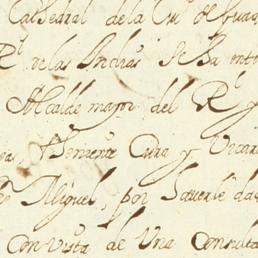 Cathedral dela Ciud de Guad
Rl delas Indias Se ha
Alcalde mayor del Rl y
Theniente Cura y Vicar
Miguel, por hauerle da
Con vista de Una Consulta